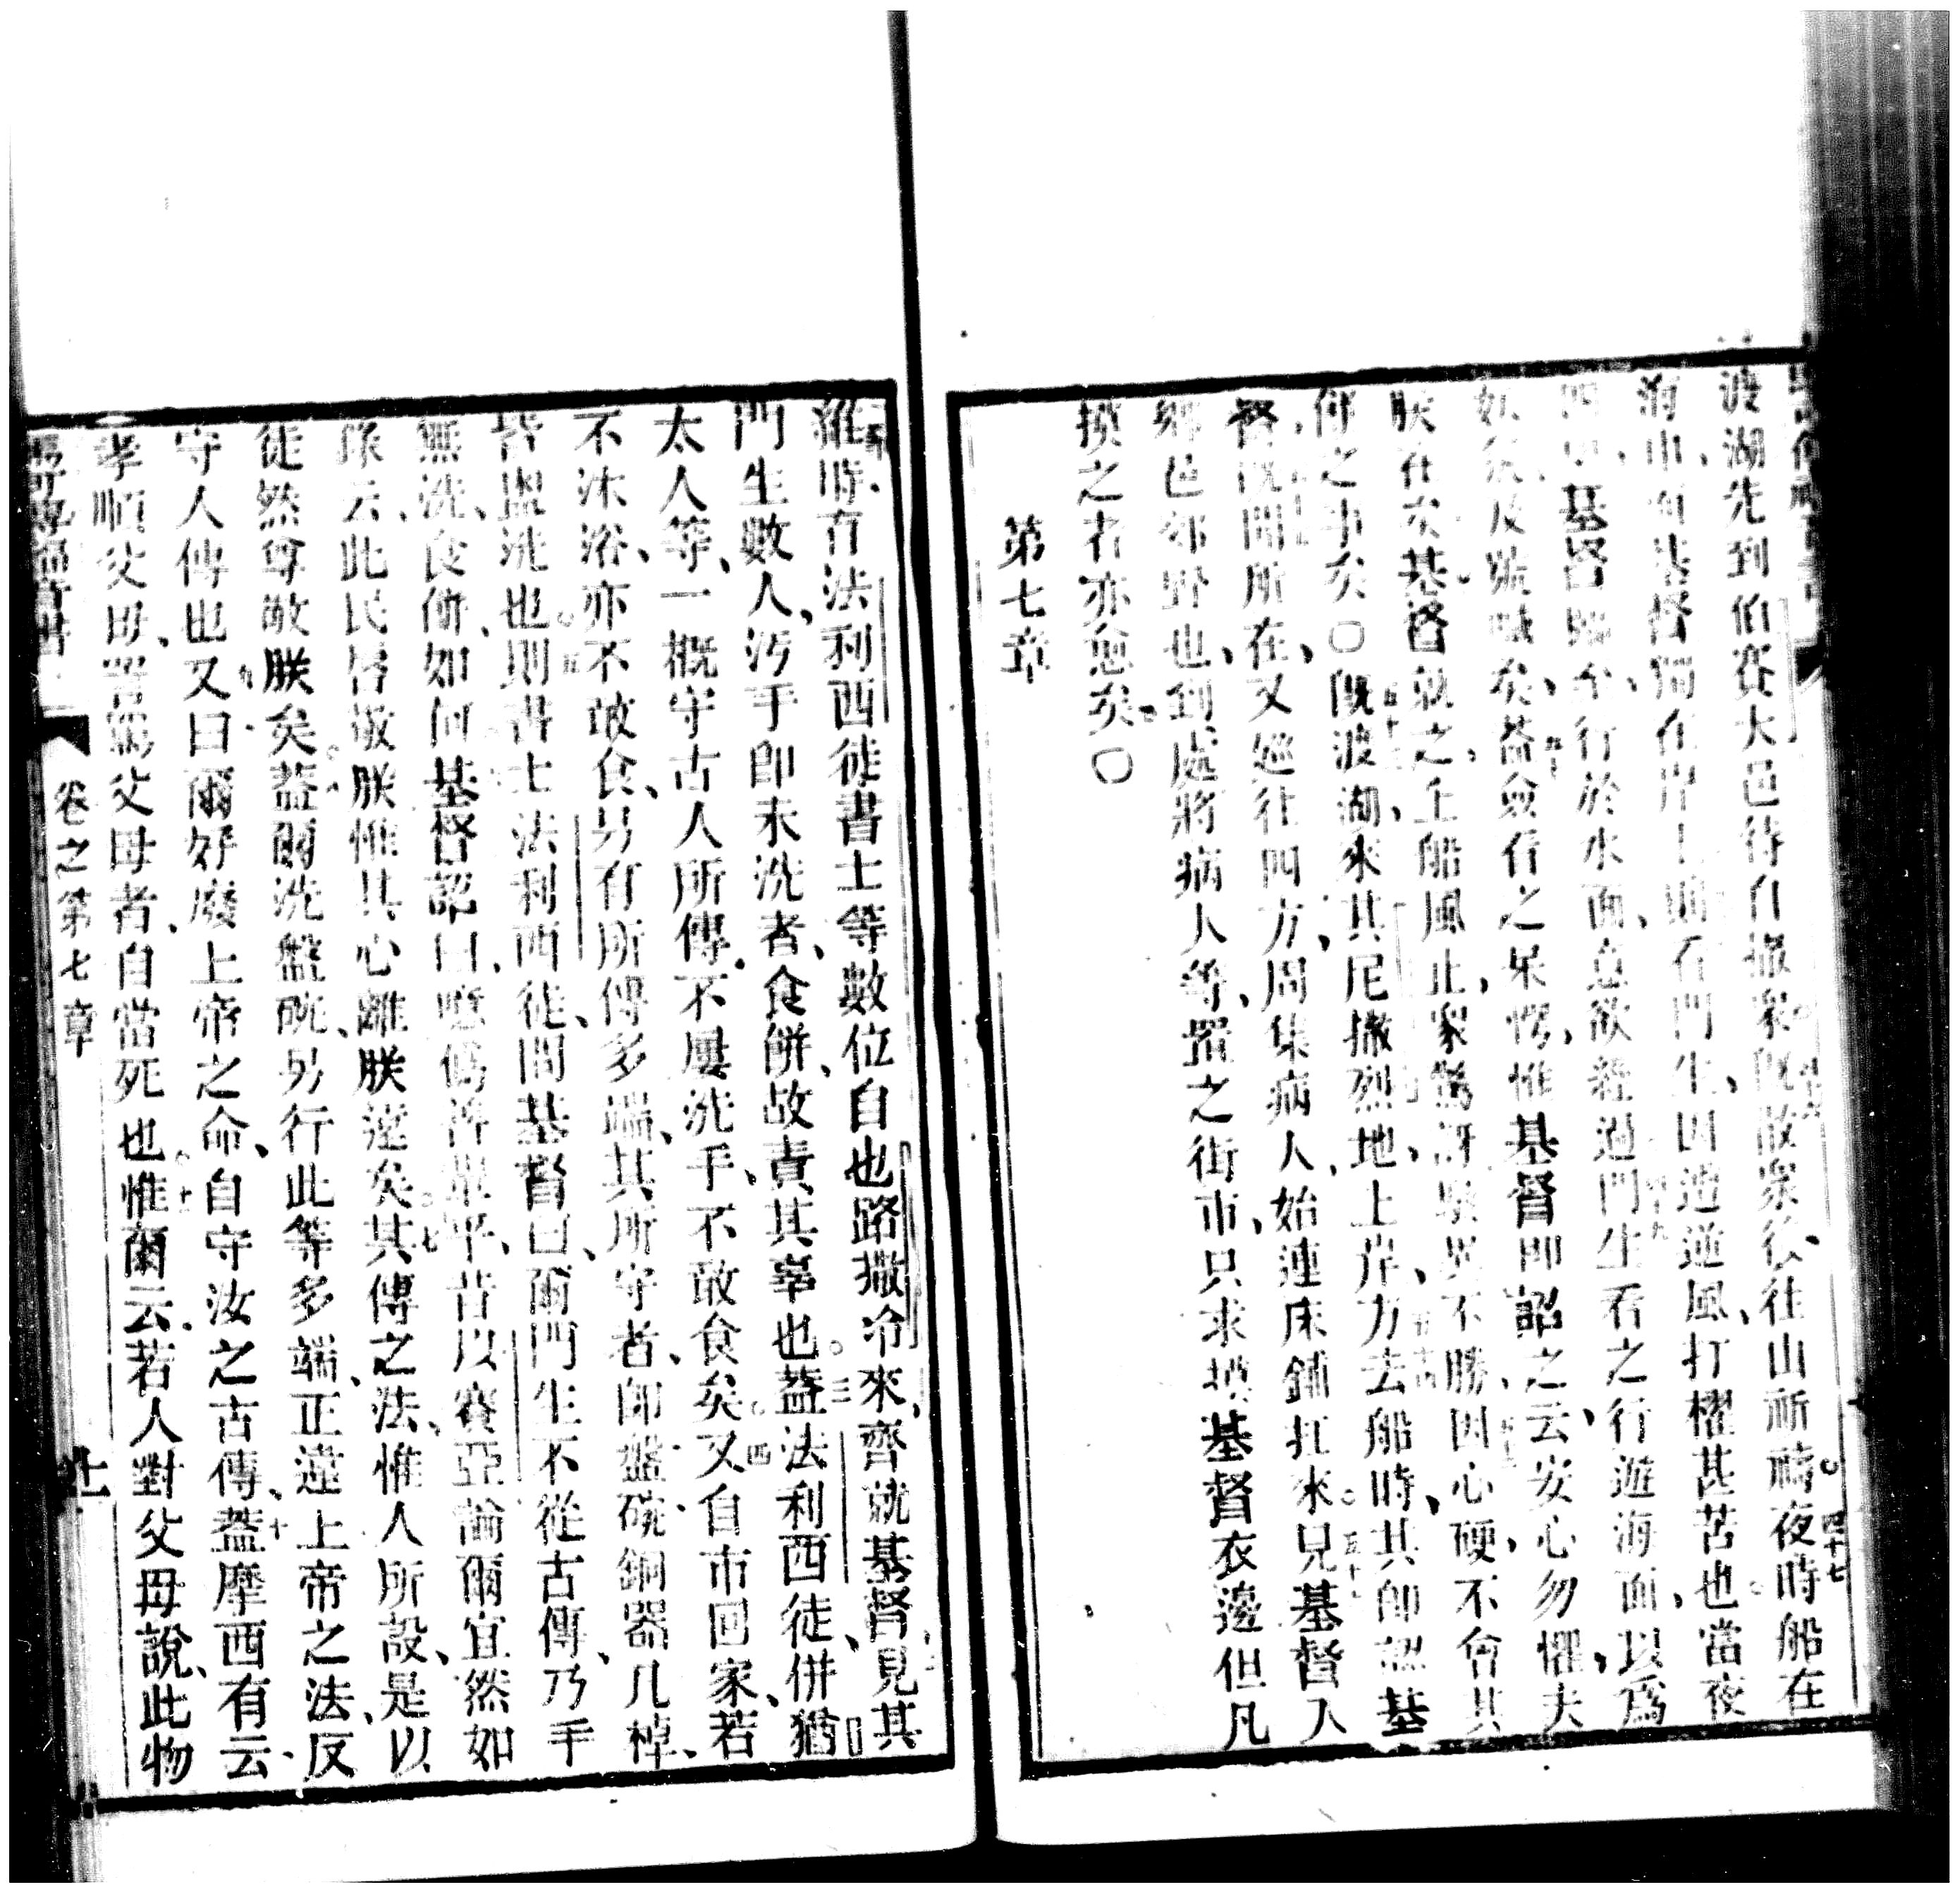 渡湖先到伯賽大邑待自撒衆旣散衆後、往山祈禱夜時船在
海中、而基督獨在岸上、睹看門生、因遭逆風、打櫂甚苦也當夜
四更、基督歸至、行於水面、意欲經過門生看之行遊海面、以爲
妖矣及號喊矣、葢僉看之呆愕、惟基督即詔之云、安心勿懼、夫
朕在矣基督就之、在船風止、衆驚訝駭異不勝、因心硬、不會其
之事矣〇旣渡湖、來其尼撒烈地、上岸、方去船時、其卽認基
督旣聞所在、又廵往四方、周集病人、始連床鋪扛來見基督入
鄉邑郊野也、到處將病人等、置之街市、只求摸基督衣邊但凡
摸之者亦愈矣。〇
第七章
維時有法利西徒書士等數位自也路撒冷來、齊就基督見其
門生數人、汚手卽未洗者、食餠、故責其辜也葢法利西徒、併猶
太人等、一概守古人所傳、不屢洗手、不敢食矣又自市回家、若
不沐浴、亦不敢食、另有所傳多端、其所守者、卽盤碗銅器几棹、
皆盥洗也則書士法利西徒、問基督曰、爾門生不從古傳、乃手
無洗、食餠、如何基督詔曰、噫僞善輩乎、昔以賽亞諭爾宜然如
錄云、此民唇敬朕惟其心離朕遠矣其傳之法、惟人所設、是以
徒然尊敬朕矣葢爾洗盤碗、另行此等多端、正違上帝之法、反
守人傳也又曰爾好廢上帝之命、自守汝之古傳、葢摩西有云、
孝順父母、詈罵父母者、自當死也惟爾云、若人對父母說、此物
卷之第七章